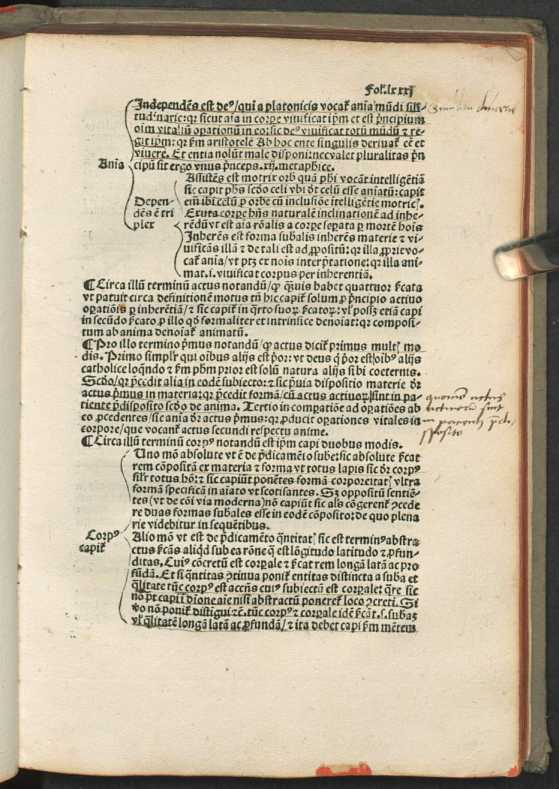 Fol. lxxxj
Independēs est deꝰ/ qui a platonicis vocat̄ aīa mūdi sili
tudīnarie: qꝛ sicut aīa in corpe viuificat ip̄m et est p̄ncipium
oīm vitaliū oꝑationū in eo: sic deꝰ viuificat totū mūdū ⁊ re
git ip̄m: qꝛ ẜm aristotelē Ab hoc ente singulis deriuat̄ eē et
viuere. Et entia nolūt male disponi: nec valet pluralitas p̄n
Aīa
cipū sit ergo vnus p̄nceps. xij. metaphice.
Assistēs est motrix orb quā phi vocāt intelligētiā
sic capit phs scd̓o celi vbi dt̄ celū esse aīatū: capit
Depen-
dēs ē tri
plex
em̄ ibi celū ꝓ orbe cū inclusiōe ītelligētie motricꝭ.
Exuta corpe hn̄s naturalē inclinationē ad inhe
rēdū vt est aīa rōalis a corpe sepata ꝑ mortē hoīs
Inherēs est forma subalis inherēs materie ⁊ vi
uificās illā ⁊ de tali est ad ꝓpositū: qꝛ illa ꝓprie vo
cat̄ aīa/ vt ptꝫ ex nois interp̄tatione: qꝛ illa ani-
mat .i. viuificat corpus per inherentiā.
¶ Circa illū terminū actus notandū/ ꝙ quis habet quattuor ẜcata
vt patuit circa definitionē motus tn̄ hic capit̄ solum ꝓ p̄ncipio actiuo
oꝑatiōis ꝑ inherētiā/ ⁊ sic capit̄ in q̄rto suoꝝ ẜcatoꝝ: vl̓ posꝫ etiā capi
in secūdo ẜcato ꝓ illo qd̓ formaliter et intrinsice denoīat: qꝛ composi-
tum ab anima denoīat̄ animatū.
¶ Pro illo termino p̄mus notandū/ ꝙ actus dicit̄ primus multꝭ mo
dis. Primo simplr̄ qui oibus alijs est p̄or: vt deus ꝗ p̄or est oībꝰ alijs
catholice loqn̄do ⁊ ẜm phm̄ prior est solū natura alijs sibi coeternis.
Scd̓o/ qꝛ p̄cedit alia in eodē subiecto: ⁊ sic p̄uia dispositio materie dr̄
actus p̄mus in materia: qꝛ p̄cedit formā/ cū actus actiuoꝝ sint in pa
tiente p̄disposito scd̓o de anima. Tertio in compatiōe ad oꝑatiōes ab
eo ꝓcedentes sic aīa dr̄ actus p̄mus: qꝛ ꝓducit oꝑationes vitales in
corpore/ que vocant̄ actus secundi respectu anime.
¶ Circa illū terminū corpꝰ notandū est ip̄m capi duobus modis.
Uno mō absolute vt ē de p̄dicamēto sube: sic absolute ẜcat
rem cōpositā ex materia ⁊ forma vt totus lapis sic dr̄ corpꝰ
silr̄ totus hō: ⁊ sic capiūt ponētes formā corporeitatꝭ vltra
formā specificā in aīato vt scotisantes. Sꝫ oppositū sentiē-
tes (vt de cōi via moderna) nō capiūt sic als̄ cōgerent̄ ꝯcede
re duas formas subales esse in eodē cōposito: de quo plena
rie videbitur in sequētibus.
Corpꝰ
capit̄
Alio mō vt est de p̄dicamēto q̄ntitatꝭ/ sic est terminꝰ abstra
ctus ẜcās aliqd̓ sub ea rōne ꝗ est lōgitudo latitudo ⁊ ꝓfun-
ditas. Cuiꝰ cōcretū est corpale ⁊ ẜcat rem longā latā ac pro
fūdā. Et si q̄ntitas ꝯtinua ponit̄ entitas distincta a suba et
q̄litate tūc corpꝰ est accn̄s cuiꝰ subiectū est corpale: q̄re sic
nō p̄t capi ī diōne aīe nisi abstractū poneret̄ loco ꝯcreti. Si
vo nō ponit̄ distīgui ⁊c. tūc corpꝰ ⁊ corpale idē ẜcāt .s. subaꝫ
vl̓ q̄litatē longā latā ac ꝓfundā/ ⁊ ita debet capi ẜm mētem